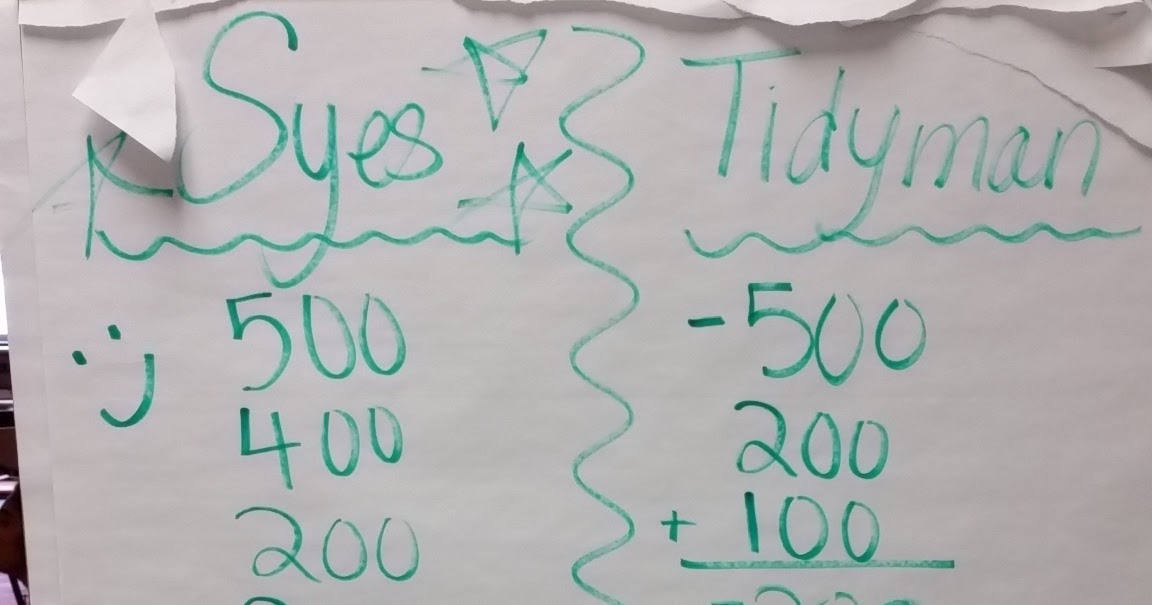 Syes
500
400
200
Tidyman
-500
200
+ 100